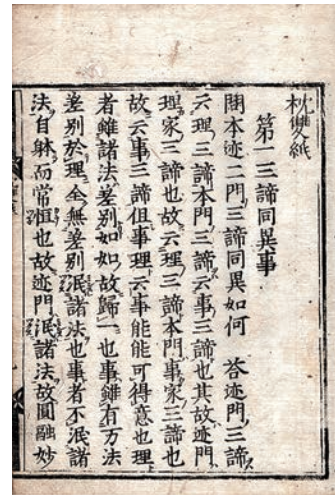 枕雙紙
第一三諦同異事
問本迹二門三諦同異如何 答迹門三諦
云理三諦本門三諦云事三諦也其故迹門
理家三諦也故云理三諦本門事家三諦也
故云事三諦但事理云事能能可得意也理
者雖諸法差別如如故歸一也事雖有万法
差別於理全無差別泯諸法也事者不泯諸
法自躰而常恒也故迹門泯諸法故圓融妙